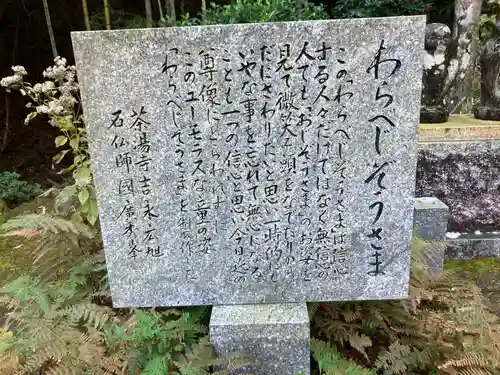 わらべじぞうさま
この「わらべじぞうさま」は信心
する人々だけではなく無信心の
人でも、おじぞうさまのお姿を
見て微笑み頭をなでたりから
だにさわりたいと思う時
いやな事を忘れて無心になる
ことも一つの信心と思い今日迄の
尊像にとらわれず
このユーモラスな童の姿
「わらべじぞうさま」を製作した
茶湯寺
石仏師